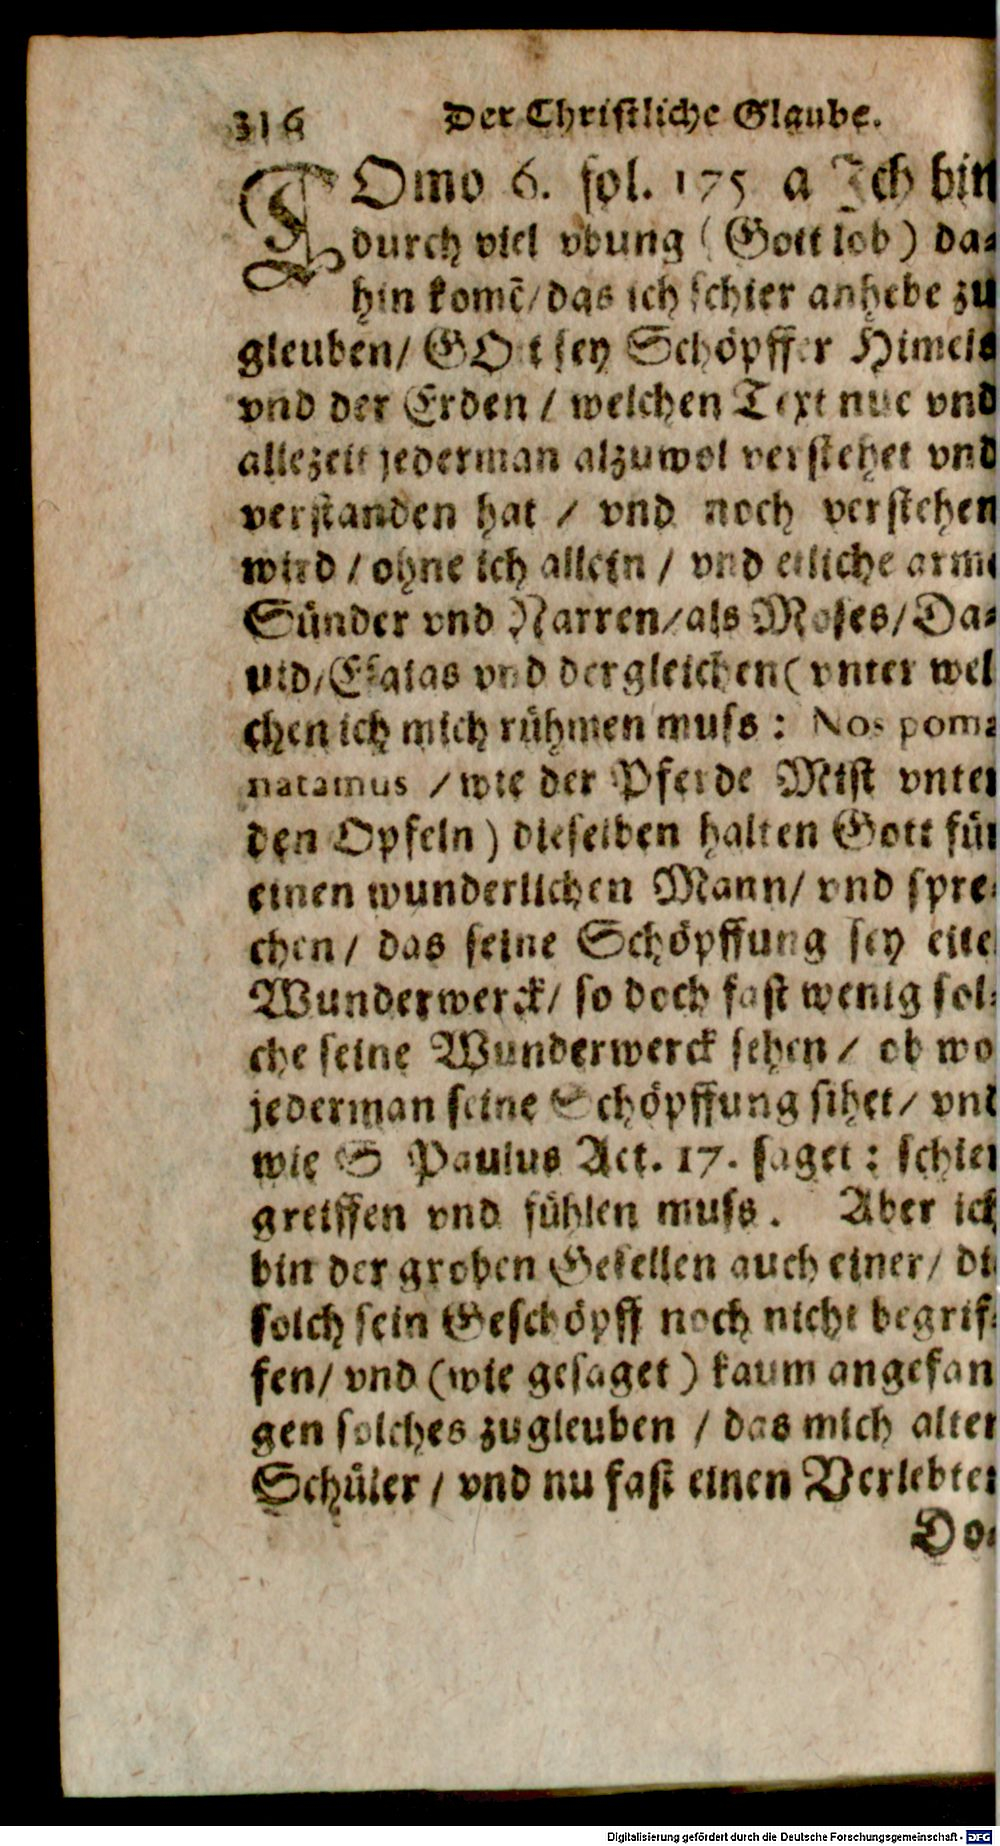 316 Der Christliche Glaube.
TOmo 6. fol. 175 a Ich bin
durch viel vbung (Gott lob) da-
hin komẽ/das ich schier anhebe zu
gleuben/ GOtt sey Schöpffer Himels
vnd der Erden / welchen Text nue vnd
allezeit jederman alzuwol verstehet vnd
verstanden hat / vnd noch verstehen
wird / ohne ich allein / vnd etliche arme
Sünder vnd Narren/als Moses/Da-
uid/Esaias vnd dergleichen(vnter wel
chen ich mich rühmen muss: Nos poma
natamus /wie der Pferde Mist vnter
den Opfeln) dieselben halten Gott für
einen wunderlichen Mann/ vnd spre-
chen/ das seine Schöpffung sey eite
Wunderwerck/ so doch fast wenig sol-
che seine Wunderwerck sehen / ob wo
jederman seine Schöpffung sihet/ vnd
wie S Paulus Act. 17. saget: schier
greiffen vnd fühlen muss. Aber ich
bin der groben Gesellen auch einer/ di
solch sein Geschöpff noch nicht begrif-
fen/ vnd (wie gesaget) kaum angefan
gen solches zugleuben / das mich alter
Schüler / vnd nu fast einen Verlebter
Do-
Digitalisierung gefördert durch die Deutsche Forschungsgemeinschaft - DFG